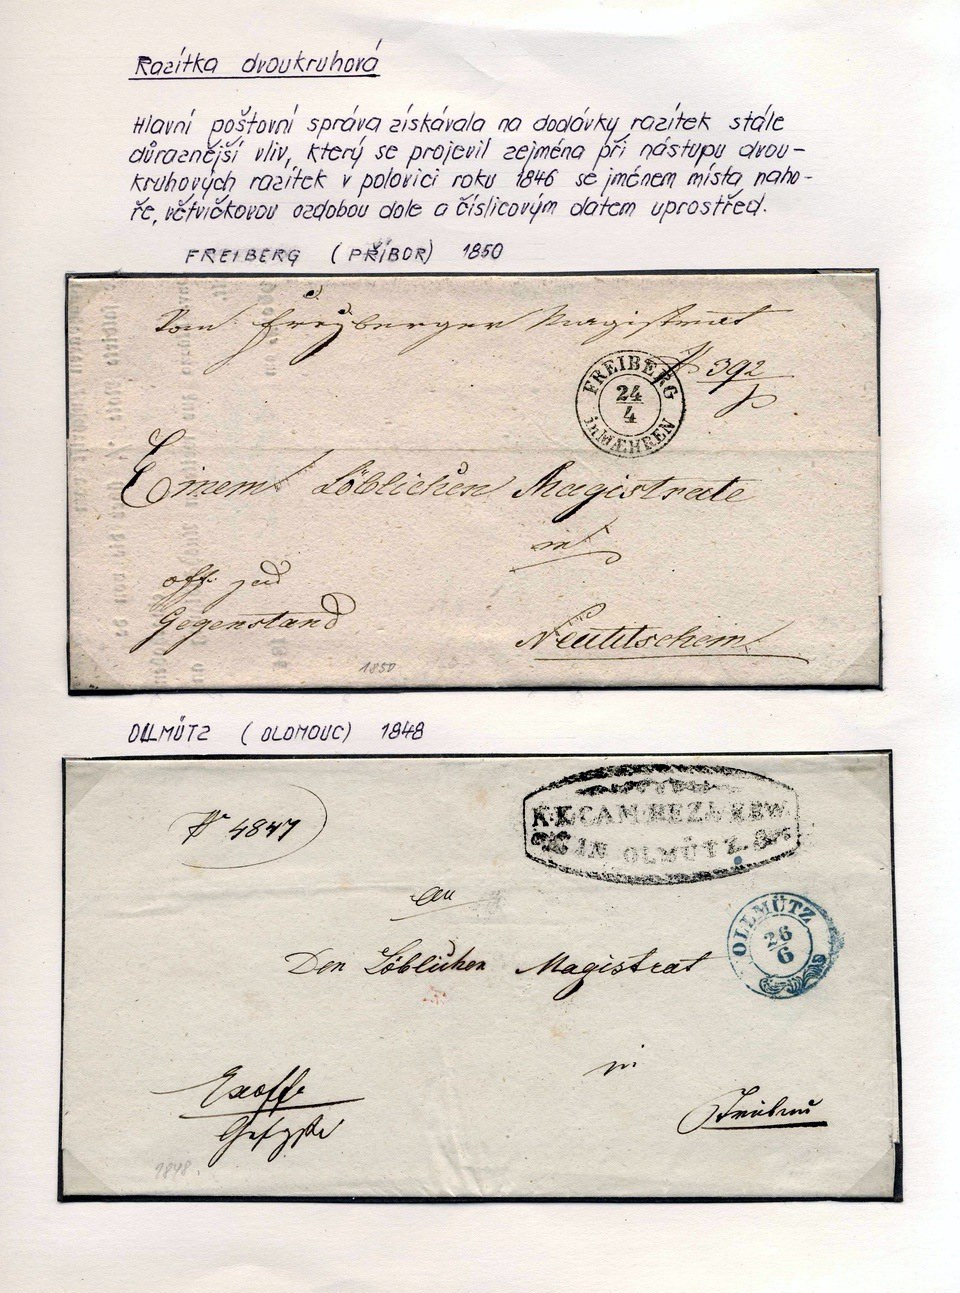 Razítka dvoukruhová
Hlavní poštovní správa získávala na dodávky razítek stále
důraznější vliv, který se projevil zejména při nástupu dvou-
kruhových razítek v polovici roku 1846 se jménem místa naho-
ře, větvičkovou ozdobou dole a číslicovým datem uprostřed.
FREIBERG (PŘÍBOR) 1850
Vom Freyberger Magistrat
392
FREIBERG
24
4
in MÆHREN
Einem Löblichen Magistrate
in
off.
Gegenstand
Neutitschein
1850
OLLMÜTZ (OLOMOUC) 1848
K.K.CAM.BEZ.VERW.
IN OLMÜTZ.
Nr 4847
An
OLLMÜTZ
26
6
Den Löblichen Magistrat
in
Exoffo
1848.